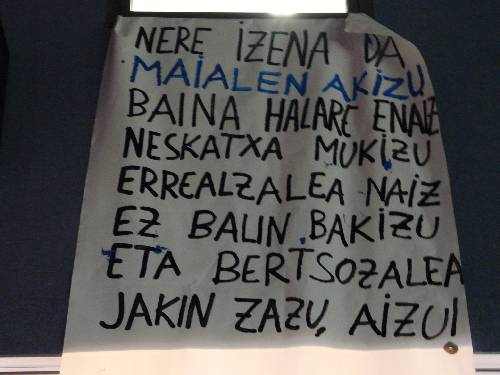 NERE IZENA DA
MAIALEN AKIZU
BAINA HALARE ENAIZ
NESKATXA MUKIZU
ERREALZALEA NAIZ
EZ BALIN BAKIZU
ETA BERTSOZALEA
JAKIN ZAZU, AIZU!